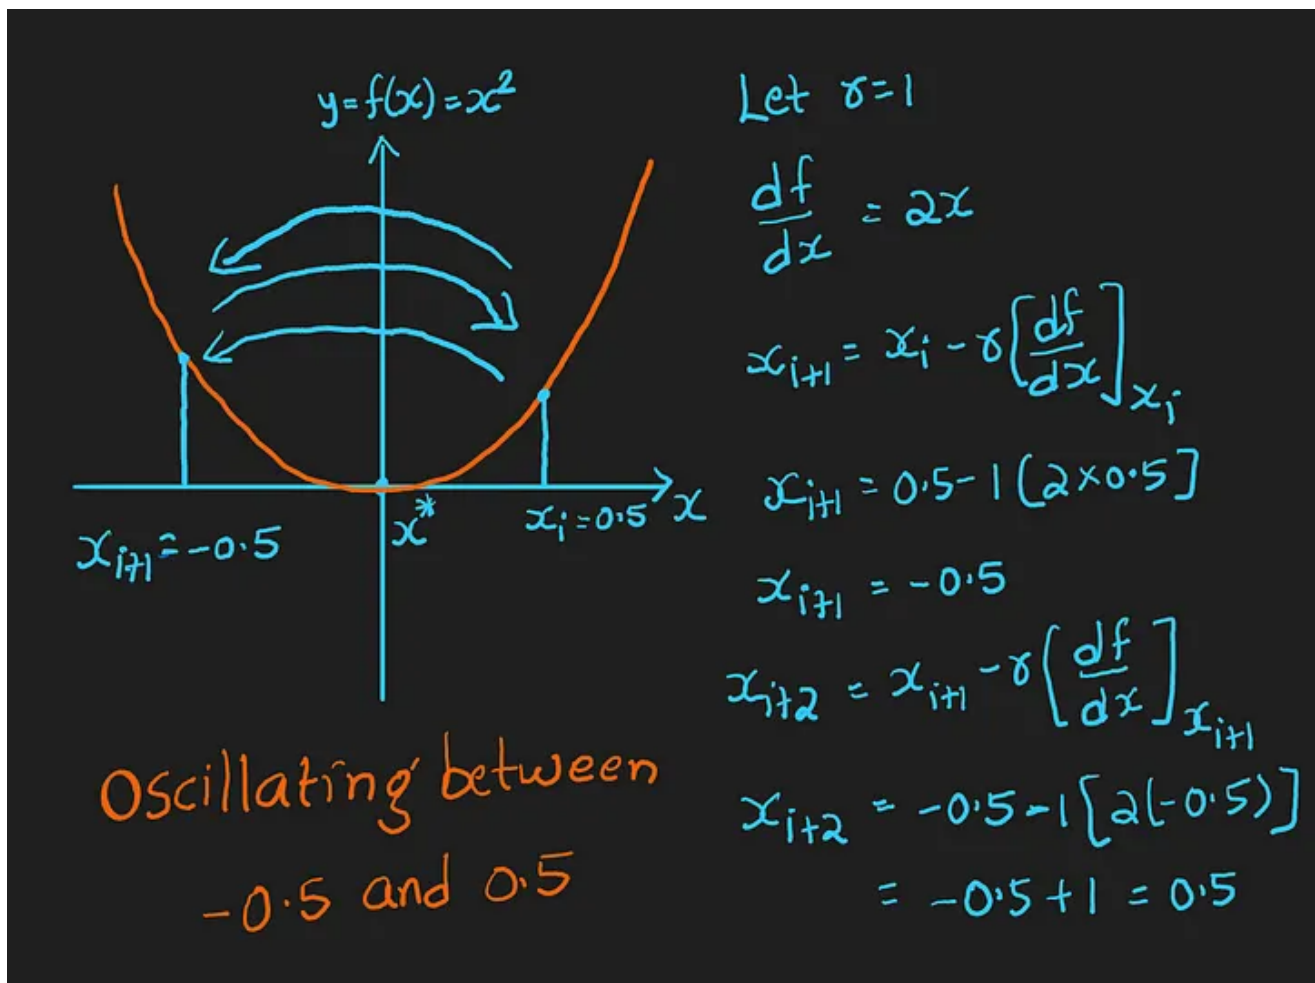 y=f(x)=x²
x_{i+1}=-0.5
x*
x_i=0.5
x
Oscillating between
-0.5 and 0.5
Let r=1
df/dx = 2x
x_{i+1} = x_i - r[df/dx]_{x_i}
x_{i+1} = 0.5-1(2×0.5]
x_{i+1} = -0.5
x_{i+2} = x_{i+1} - r[df/dx]_{x_{i+1}}
x_{i+2} = -0.5-1[2(-0.5)]
= -0.5+1 = 0.5